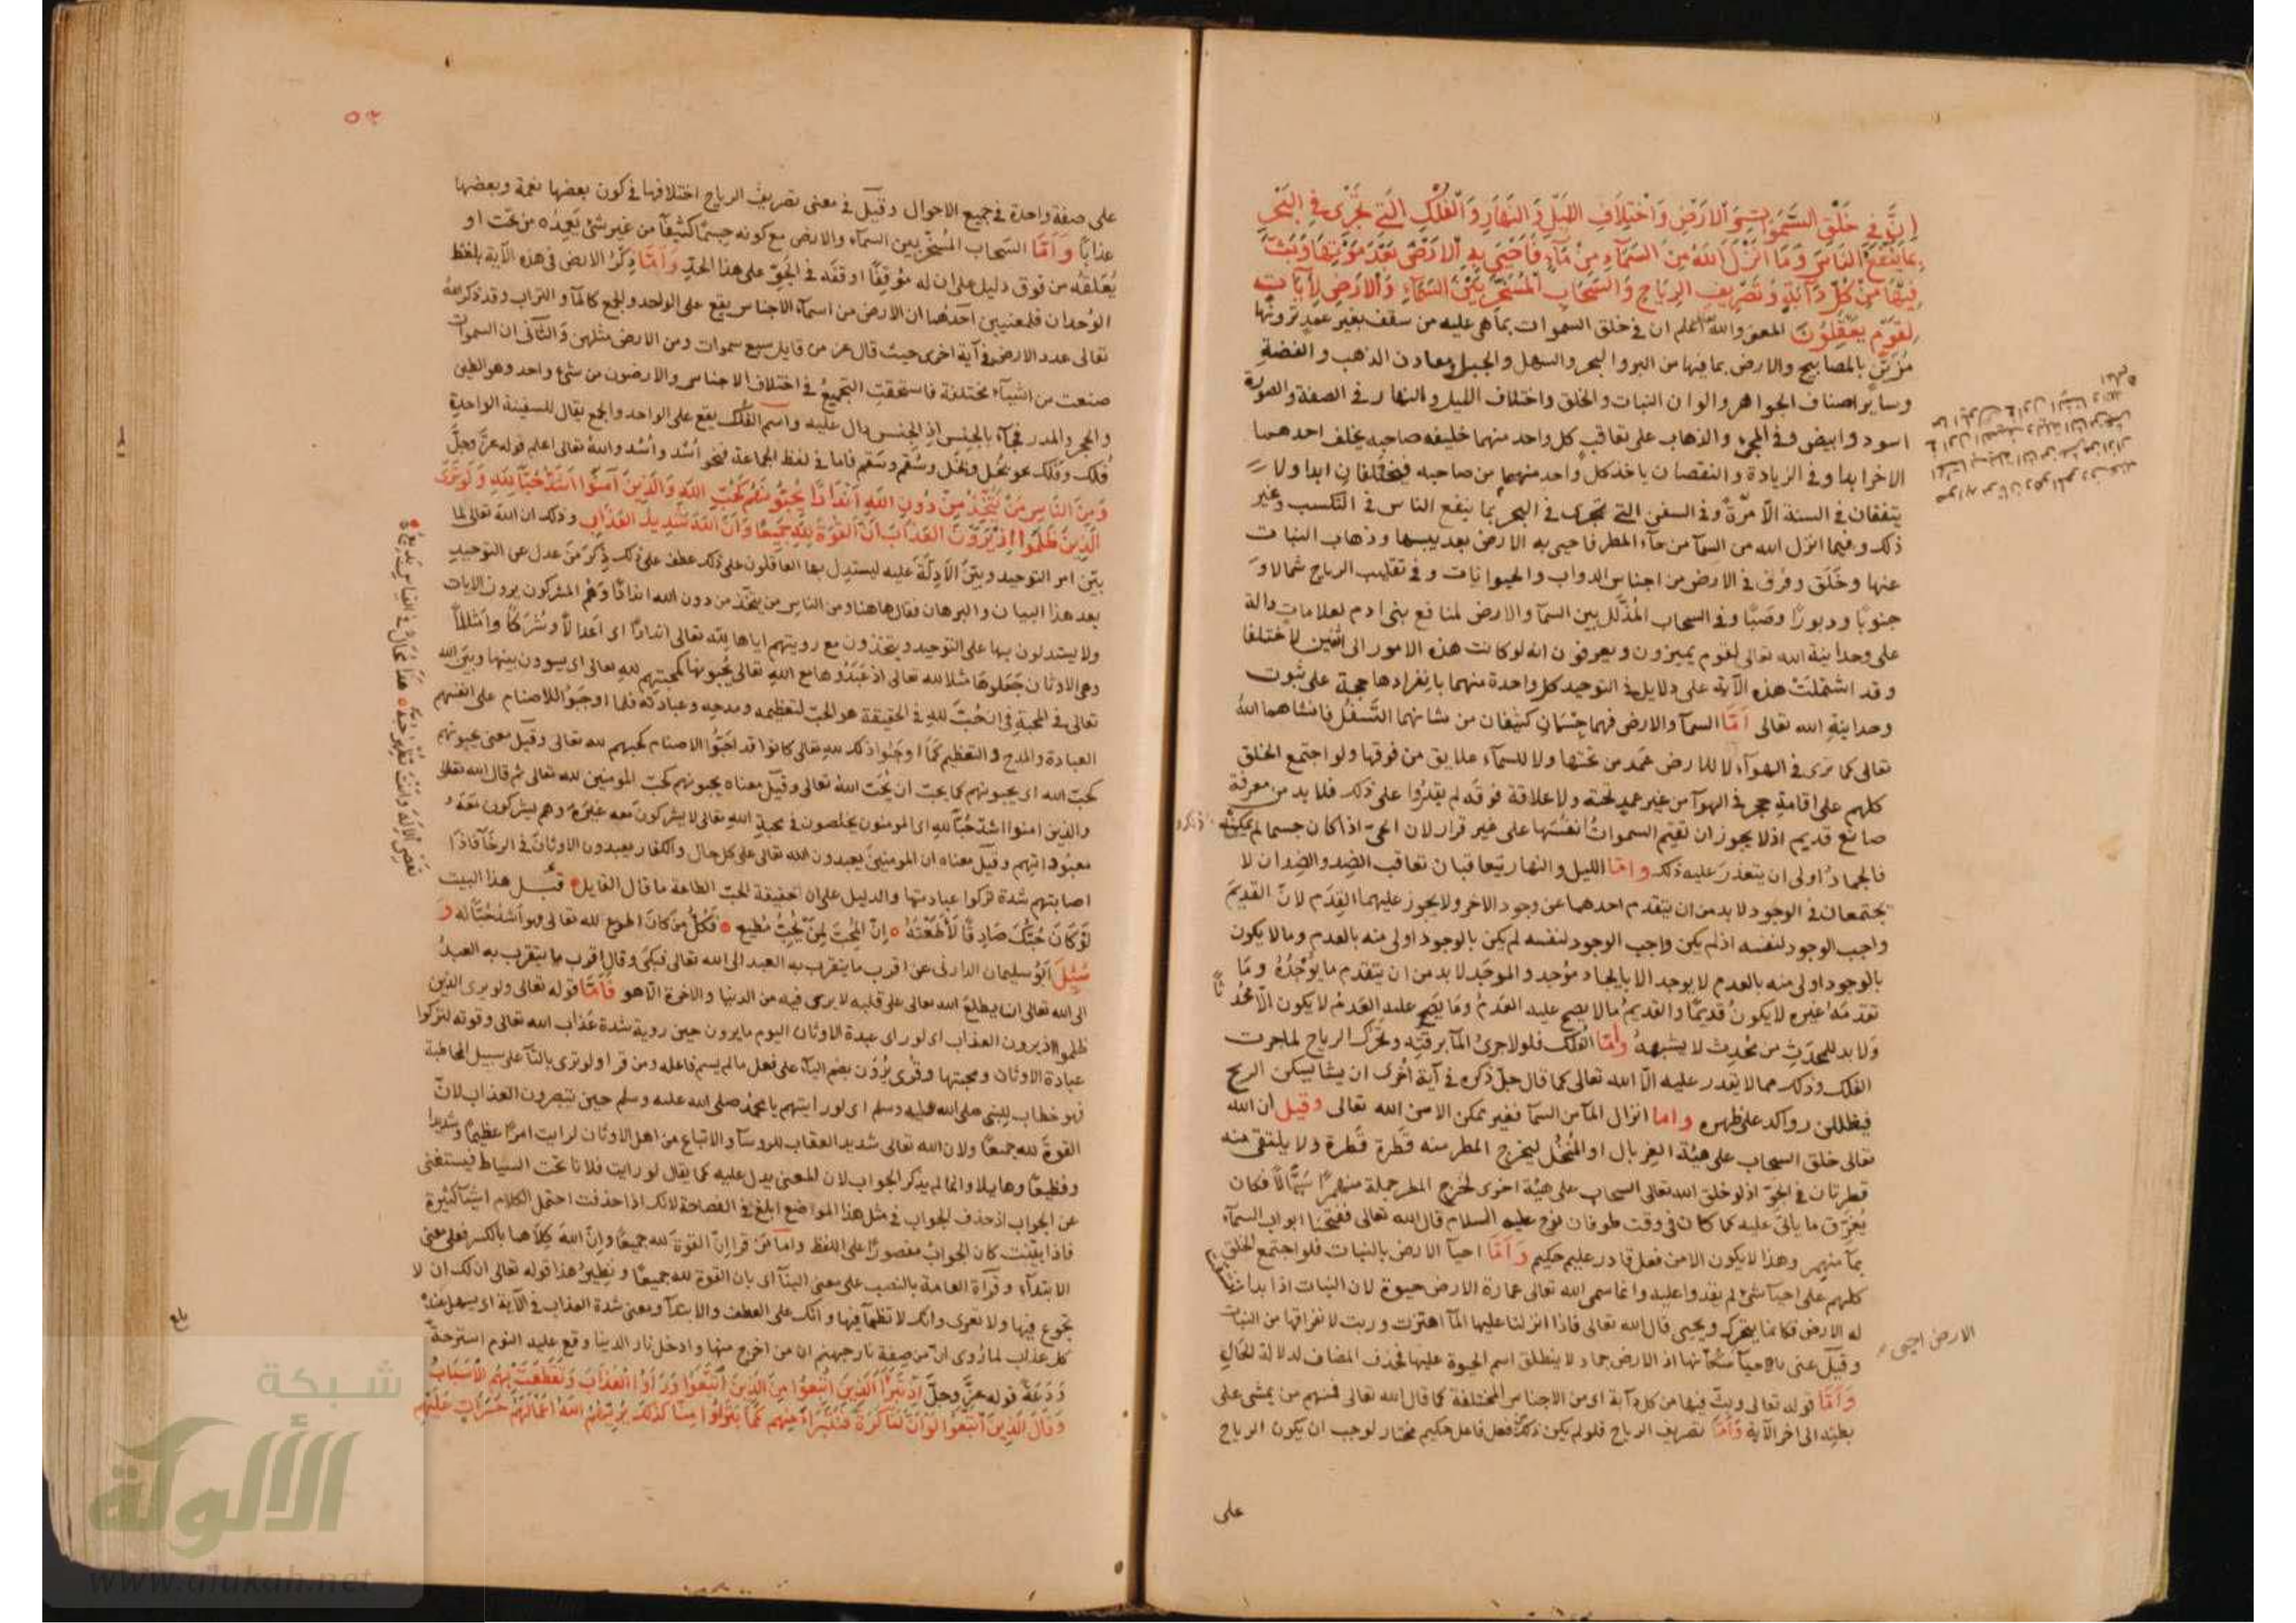 إِنَّ فِي خَلْقِ السَّمَوَاتِ وَالْأَرْضِ وَاخْتِلَافِ اللَّيْلِ وَالنَّهَارِ وَالْفُلْكِ الَّتِي تَجْرِي فِي الْبَحْرِ
بِمَا يَنْفَعُ النَّاسَ وَمَا أَنْزَلَ اللَّهُ مِنَ السَّمَاءِ مِنْ مَاءٍ فَأَحْيَى بِهِ الْأَرْضَ بَعْدَ مَوْتِهَا وَبَثَّ
فِيهَا مِنْ كُلِّ دَابَّةٍ وَتَصْرِيفِ الرِّيَاحِ وَالسَّحَابِ الْمُسَخَّرِ بَيْنَ السَّمَاءِ وَالْأَرْضِ لَآيَاتٍ
لِقَوْمٍ يَعْقِلُونَ المعنى والله اعلم ان في خلق السموات بما هي عليه من سقف بغير عمد ترونها
مزين بالمصابيح والارض بما فيها من البر والبحر والسهل والجبل ومعادن الذهب والفضة
وساير اصناف الجواهر والوان النبات والخلق واختلاف الليل والنهار في الصفة والصورة
اسود وابيض وفي المجيء والذهاب على تعاقب كل واحد منهما خليفه صاحبه يخلف احدهما
الاخر ابدا وفي الزيادة والنقصان ياخذ كل واحد منهما من صاحبه فيختلفان ابدا ولا
يتفقان في السنة الا مرة وفي السفن التي تجري في البحر بما ينفع الناس في التكسب وغير
ذلك وفيما انزل الله من السماء من ماء المطر فاحيى به الارض بعد يبسها وذهاب النبات
عنها وخلق وفرق في الارض من اجناس الدواب والحيوانات وفي تقليب الرياح شمالا و
جنوبا ودبورا وصبا وفي السحاب المذلل بين السما والارض لمنافع بني ادم لعلامات دالة
على وحدانية الله تعالى لقوم يميزون ويعرفون انه لو كانت هذه الامور الى اثنين لاختلفا
وقد اشتملت هذه الآية على دلايل في التوحيد كل واحدة منهما بانفرادها حجة على ثبوت
وحدانية الله تعالى اما السما والارض فهما جسمان كثيفان من شانهما التسفل فانشاهما الله
تعالى كما ترى في الهوآء لا للارض عمد من تحتها ولا للسمآء علايق من فوقها ولو اجتمع الخلق
كلهم على اقامة حجر في الهوآ من غير عمد تحته ولا علاقة فوقه لم يقدروا على ذلك فلا بد من معرفة
صانع قديم اذ لا يجوز ان تقيم السموات انفسها على غير قرار لان الحي اذا كان جسما لم يمكنه
فالجماد اولى ان يتعذر عليه ذلك واما الليل والنهار يتعاقبان تعاقب الضد والضدان لا
يجتمعان في الوجود لا بد من ان يتقدم احدهما عن وجود الاخر ولا يجوز عليهما القدم لان القديم
واجب الوجود لنفسه اذ لم يكن واجب الوجود لنفسه لم يكن بالوجود اولى منه بالعدم وما لا يكون
بالوجود اولى منه بالعدم لا يوجد الا بايجاد موجد والموجد لا بد من ان يتقدم ما يوجده وما
تقدمه غيره لا يكون قديما والقديم ما لا يصح عليه العدم وما يصح عليه العدم لا يكون الا محدثا
ولا بد للمحدث من محدث لا يشبهه واما الفلك فلولا جري المآ برقته وتحرك الرياح لما جرت
الفلك وذلك مما لا يقدر عليه الا الله تعالى كما قال جل ذكره في آية اخرى ان يشا يسكن الريح
فيظللن رواكد على ظهره واما انزال المآ من السما فغير ممكن الا من الله تعالى وقيل ان الله
تعالى خلق السحاب على هيئة الغربال او المنخل ليخرج المطر منه قطرة قطرة ولا يلتقي منه
قطرتان في الجو اذ لو خلق الله تعالى السحاب على هيئة اخرى لخرج المطر جملة منهمرا سيالا فكان
يغرق ما ياتي عليه كما كان في وقت طوفان نوح عليه السلام قال الله تعالى ففتحنا ابواب السمآء
بمآ منهمر وهذا لا يكون الا من فعل قادر عليم حكيم واما احيآ الارض بالنبات فلو اجتمع الخلق
كلهم على احيآ شئ لم يقدروا عليه وانما سمى الله تعالى عمارة الارض حيوة لان النبات اذا بدا
له الارض فكانما يتحرك ويحيى قال الله تعالى فاذا انزلنا عليها المآ اهتزت وربت
وقيل عنى باحيآ سكانها اذ الارض جماد لا ينطلق اسم الحيوة عليها فحذف المضاف لدلالة الحال
واما قوله تعالى وبث فيها من كل دآبة اي من الاجناس المختلفة كما قال الله تعالى فمنهم من يمشي على
بطنه الى اخر الآية واما تصريف الرياح فلو لم يكن ذلك فعل فاعل حكيم مختار لوجب ان يكون الرياح
على
الارض احيى
٥٣
على صفة واحدة في جميع الاحوال وقيل في معنى تصريف الرياح اختلافها في كون بعضها نعمة وبعضها
عذابا واما السحاب المسخر بين السمآء والارض مع كونه جسما كثيفا من غير شئ يعمده من تحت او
يعلقه من فوق دليل على ان له موقفا اوقفه في الجو على هذا الحد واما ذكر الارض في هذه الآية بلفظ
الوحدان فلمعنيين احدهما ان الارض من اسمآء الاجناس يقع على الواحد والجمع كالمآء والتراب وقد ذكر الله
تعالى عدد الارض في آية اخرى حيث قال عز من قايل سبع سموات ومن الارض مثلهن والثاني ان السموات
صنعت من اشيآء مختلفة فاستحقت التجميع في اختلاف الاجناس والارضون من شئ واحد وهو الطين
والحجر والمدر فجآء بالجنس اذ الجنس دال عليه واسم الفلك يقع على الواحد والجمع يقال للسفينة الواحدة
فلك وفلك نحو بخل وبخل وسقم وسقم فاما في لفظ الجماعة فنحو اسد واسد والله تعالى اعلم قوله عز وجل
وَمِنَ النَّاسِ مَنْ يَتَّخِذُ مِنْ دُونِ اللَّهِ أَنْدَادًا يُحِبُّونَهُمْ كَحُبِّ اللَّهِ وَالَّذِينَ آمَنُوا أَشَدُّ حُبًّا لِلَّهِ وَلَوْ تَرَى
الَّذِينَ ظَلَمُوا إِذْ يَرَوْنَ الْعَذَابَ أَنَّ الْقُوَّةَ لِلَّهِ جَمِيعًا وَأَنَّ اللَّهَ شَدِيدُ الْعَذَابِ وذلك ان الله تعالى لما
بين امر التوحيد وبين الادلة عليه ليستدل بها العاقلون على ذلك عطف على ذلك ذكر من عدل عن التوحيد
بعد هذا البيان والبرهان فقال هاهنا ومن الناس من يتخذ من دون الله اندادا وهم المشركون يرون الايات
ولا يستدلون بها على التوحيد ويتخذون مع رويتهم اياها لله تعالى اندادا اي اعدالا وشركا وامثالا
وهي الاوثان جعلوها مثلا لله تعالى اذ عبدوها مع الله تعالى يحبونها كمحبتهم لله تعالى اي يسوون بينها وبين الله
تعالى في المحبة في ان حب لله في الحقيقة هو الحب لتعظيمه ومدحه وعبادته فلما اوجبوا للاصنام على انفسهم
العبادة والمدح والتعظيم كما اوجبوا ذلك لله تعالى كانوا قد احبوا الاصنام كحبهم لله تعالى وقيل معنى يحبونهم
كحب الله اي يحبونهم كما يجب ان يحب الله تعالى وقيل معناه يحبونهم كحب المومنين لله تعالى ثم قال الله تعالى
والذين امنوا اشد حبا لله اي المومنون يخلصون في محبة الله تعالى لا يشركون معه غيره وهم يشركون معه
معبوداتهم وقيل معناه ان المومنين يعبدون الله تعالى على كل حال والكفار يعبدون الاوثان في الرخآ فاذا
اصابتهم شدة تركوا عبادتها والدليل على ان حقيقة الحب الطاعة ما قال القايل قبل هذا البيت
لَوْ كَانَ حُبُّكَ صَادِقًا لَأَطَعْتَهُ إِنَّ الْمُحِبَّ لِمَنْ يُحِبُّ مُطِيعُ فكل من كان اطوع لله تعالى فهو اشد حبا له و
سئل ابو سليمان الداراني عن اقرب ما يتقرب به العبد الى الله تعالى فبكى وقال اقرب ما يتقرب به العبد
الى الله تعالى ان يطلع الله تعالى على قلبه لا يرى فيه من الدنيا والاخرة الا هو فاما قوله تعالى ولو يرى الذين
ظلموا اذ يرون العذاب اي لو راى عبدة الاوثان اليوم ما يرون حين روية شدة عذاب الله تعالى وقوته لتركوا
عبادة الاوثان ومحبتها وقرئ يرون بضم اليآء على فعل ما لم يسم فاعله ومن قرا ولو ترى بالتآ على سبيل المخاطبة
فهو خطاب للنبي صلى الله عليه وسلم اي لو رايتهم يا محمد صلى الله عليه وسلم حين تبصرون العذاب لان
القوة لله جميعا ولان الله تعالى شديد العقاب للروسآ والاتباع من اهل الاوثان لرايت امرا عظيما وشديدا
وفظيعا وهايلا وانما لم يذكر الجواب لان المعنى يدل عليه كما يقال لو رايت فلانا تحت السياط فيستغنى
عن الجواب اذ حذف الجواب في مثل هذا المواضع ابلغ في الفصاحة لانك اذا حذفت احتمل الكلام اشيآ كثيرة
فاذا بينت كان الجواب مقصورا على اللفظ واما من قرا ان القوة لله جميعا وان الله كلاهما بالكسر فعلى معنى
الابتدآء وقرآة العامة بالنصب على معنى البنآ اي بان القوة لله جميعا ونظير هذا قوله تعالى ان لك ان لا
تجوع فيها ولا تعرى وانك لا تظمآ فيها وانك على العطف والابتدآ ومعنى شدة العذاب في الآية اي يسهل عنده
كل عذاب لما روي ان من صفة نار جهنم ان من اخرج منها وادخل نار الدينا وقع عليه النوم استرحة
ودعة قوله عز وجل إِذْ تَبَرَّأَ الَّذِينَ اتُّبِعُوا مِنَ الَّذِينَ اتَّبَعُوا وَرَأَوُا الْعَذَابَ وَتَقَطَّعَتْ بِهِمُ الْأَسْبَابُ
وَقَالَ الَّذِينَ اتَّبَعُوا لَوْ أَنَّ لَنَا كَرَّةً فَنَتَبَرَّأَ مِنْهُمْ كَمَا تَبَرَّءُوا مِنَّا كَذَلِكَ يُرِيهِمُ اللَّهُ أَعْمَالَهُمْ حَسَرَاتٍ عَلَيْهِمْ
تَعْصِي الْإِلَهَ وَأَنْتَ تُظْهِرُ حُبَّهُ هَذَا مُحَالٌ فِي الْقِيَاسِ بَدِيعُ
بلغ
شبكة
الألوكة
www.alukah.net